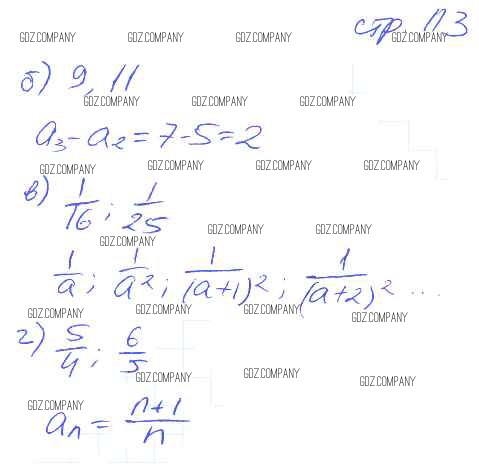 стр. 113
GDZ.COMPANY GDZ.COMPANY GDZ.COMPANY GDZ.COMPANY
б) 9, 11
GDZ.COMPANY GDZ.COMPANY GDZ.COMPANY
a₃ - a₂ = 7 - 5 = 2
GDZ.COMPANY GDZ.COMPANY GDZ.COMPANY GDZ.COMPANY
в) 1/16; 1/25
GDZ.COMPANY GDZ.COMPANY GDZ.COMPANY
1/a; 1/a²; 1/(a+1)²; 1/(a+2)² ...
GDZ.COMPANY GDZ.COMPANY GDZ.COMPANY GDZ.COMPANY
г) 5/4; 6/5
GDZ.COMPANY GDZ.COMPANY GDZ.COMPANY
GDZ.COMPANY
aₙ = n+1/n